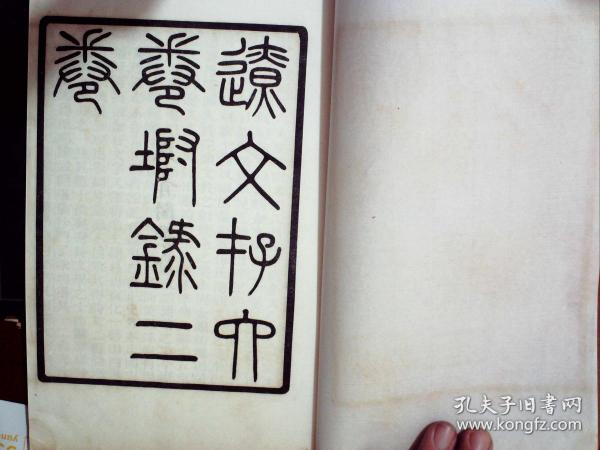 遼文存六
卷坿錄二
卷
孔夫子旧书网
www.kongfz.com